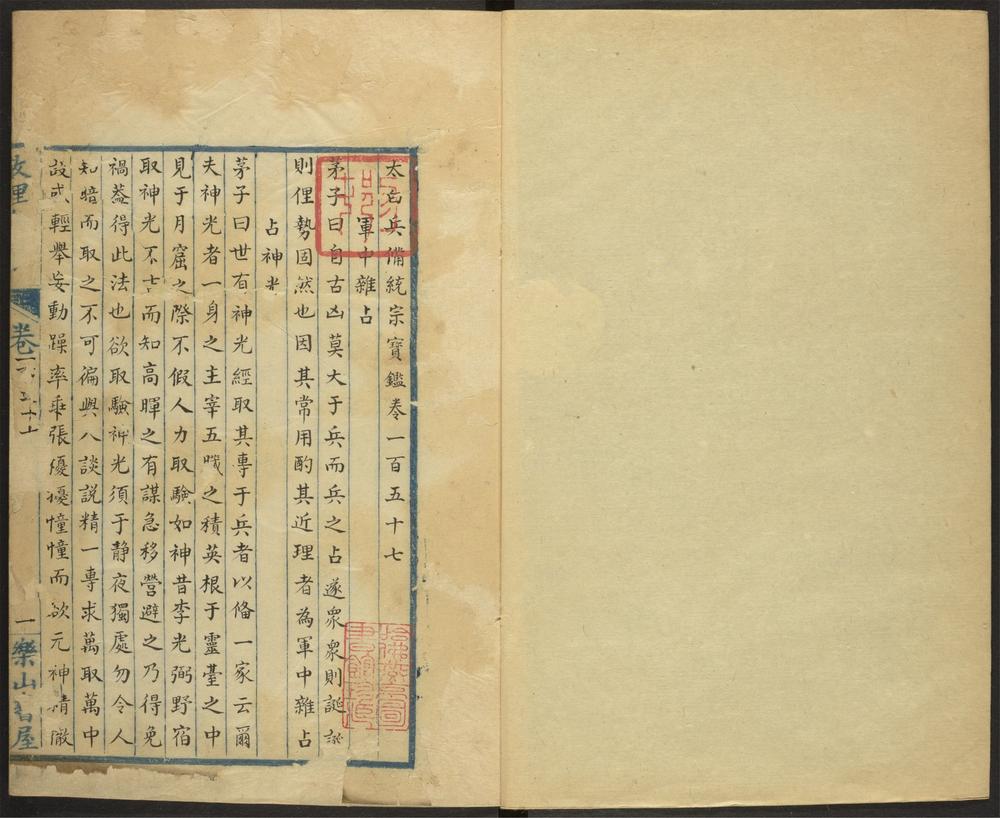 太白兵備統宗寶鑑卷一百五十七
軍中雜占
茅子曰自古凶莫大于兵而兵之占遂衆衆則誕誕
則俚勢固然也因其常用酌其近理者為軍中雜占
占神光
茅子曰世有神光經取其專于兵者以備一家云爾
夫神光者一身之主宰五臓之積英根于靈臺之中
見于月窟之際不假人力取驗如神昔李光弼野宿
取神光不士而知高暉之有謀急移營避之乃得免
禍葢得此法也欲取驗神光須于静夜獨處勿令人
知暗而取之不可徧與八談説精一專求萬取萬中
設或輕舉妄動躁率乖張優擾憧憧而欲元神精徹
卷一百五十七
一
樂山書屋